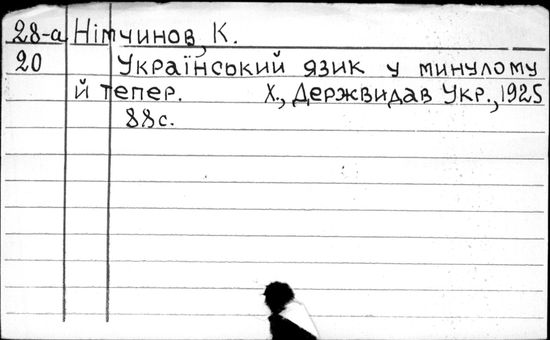 28-а Німчинов, К.
20 Український язик у минулому
й тепер. Х., Держвидав Укр., 1925
88с.